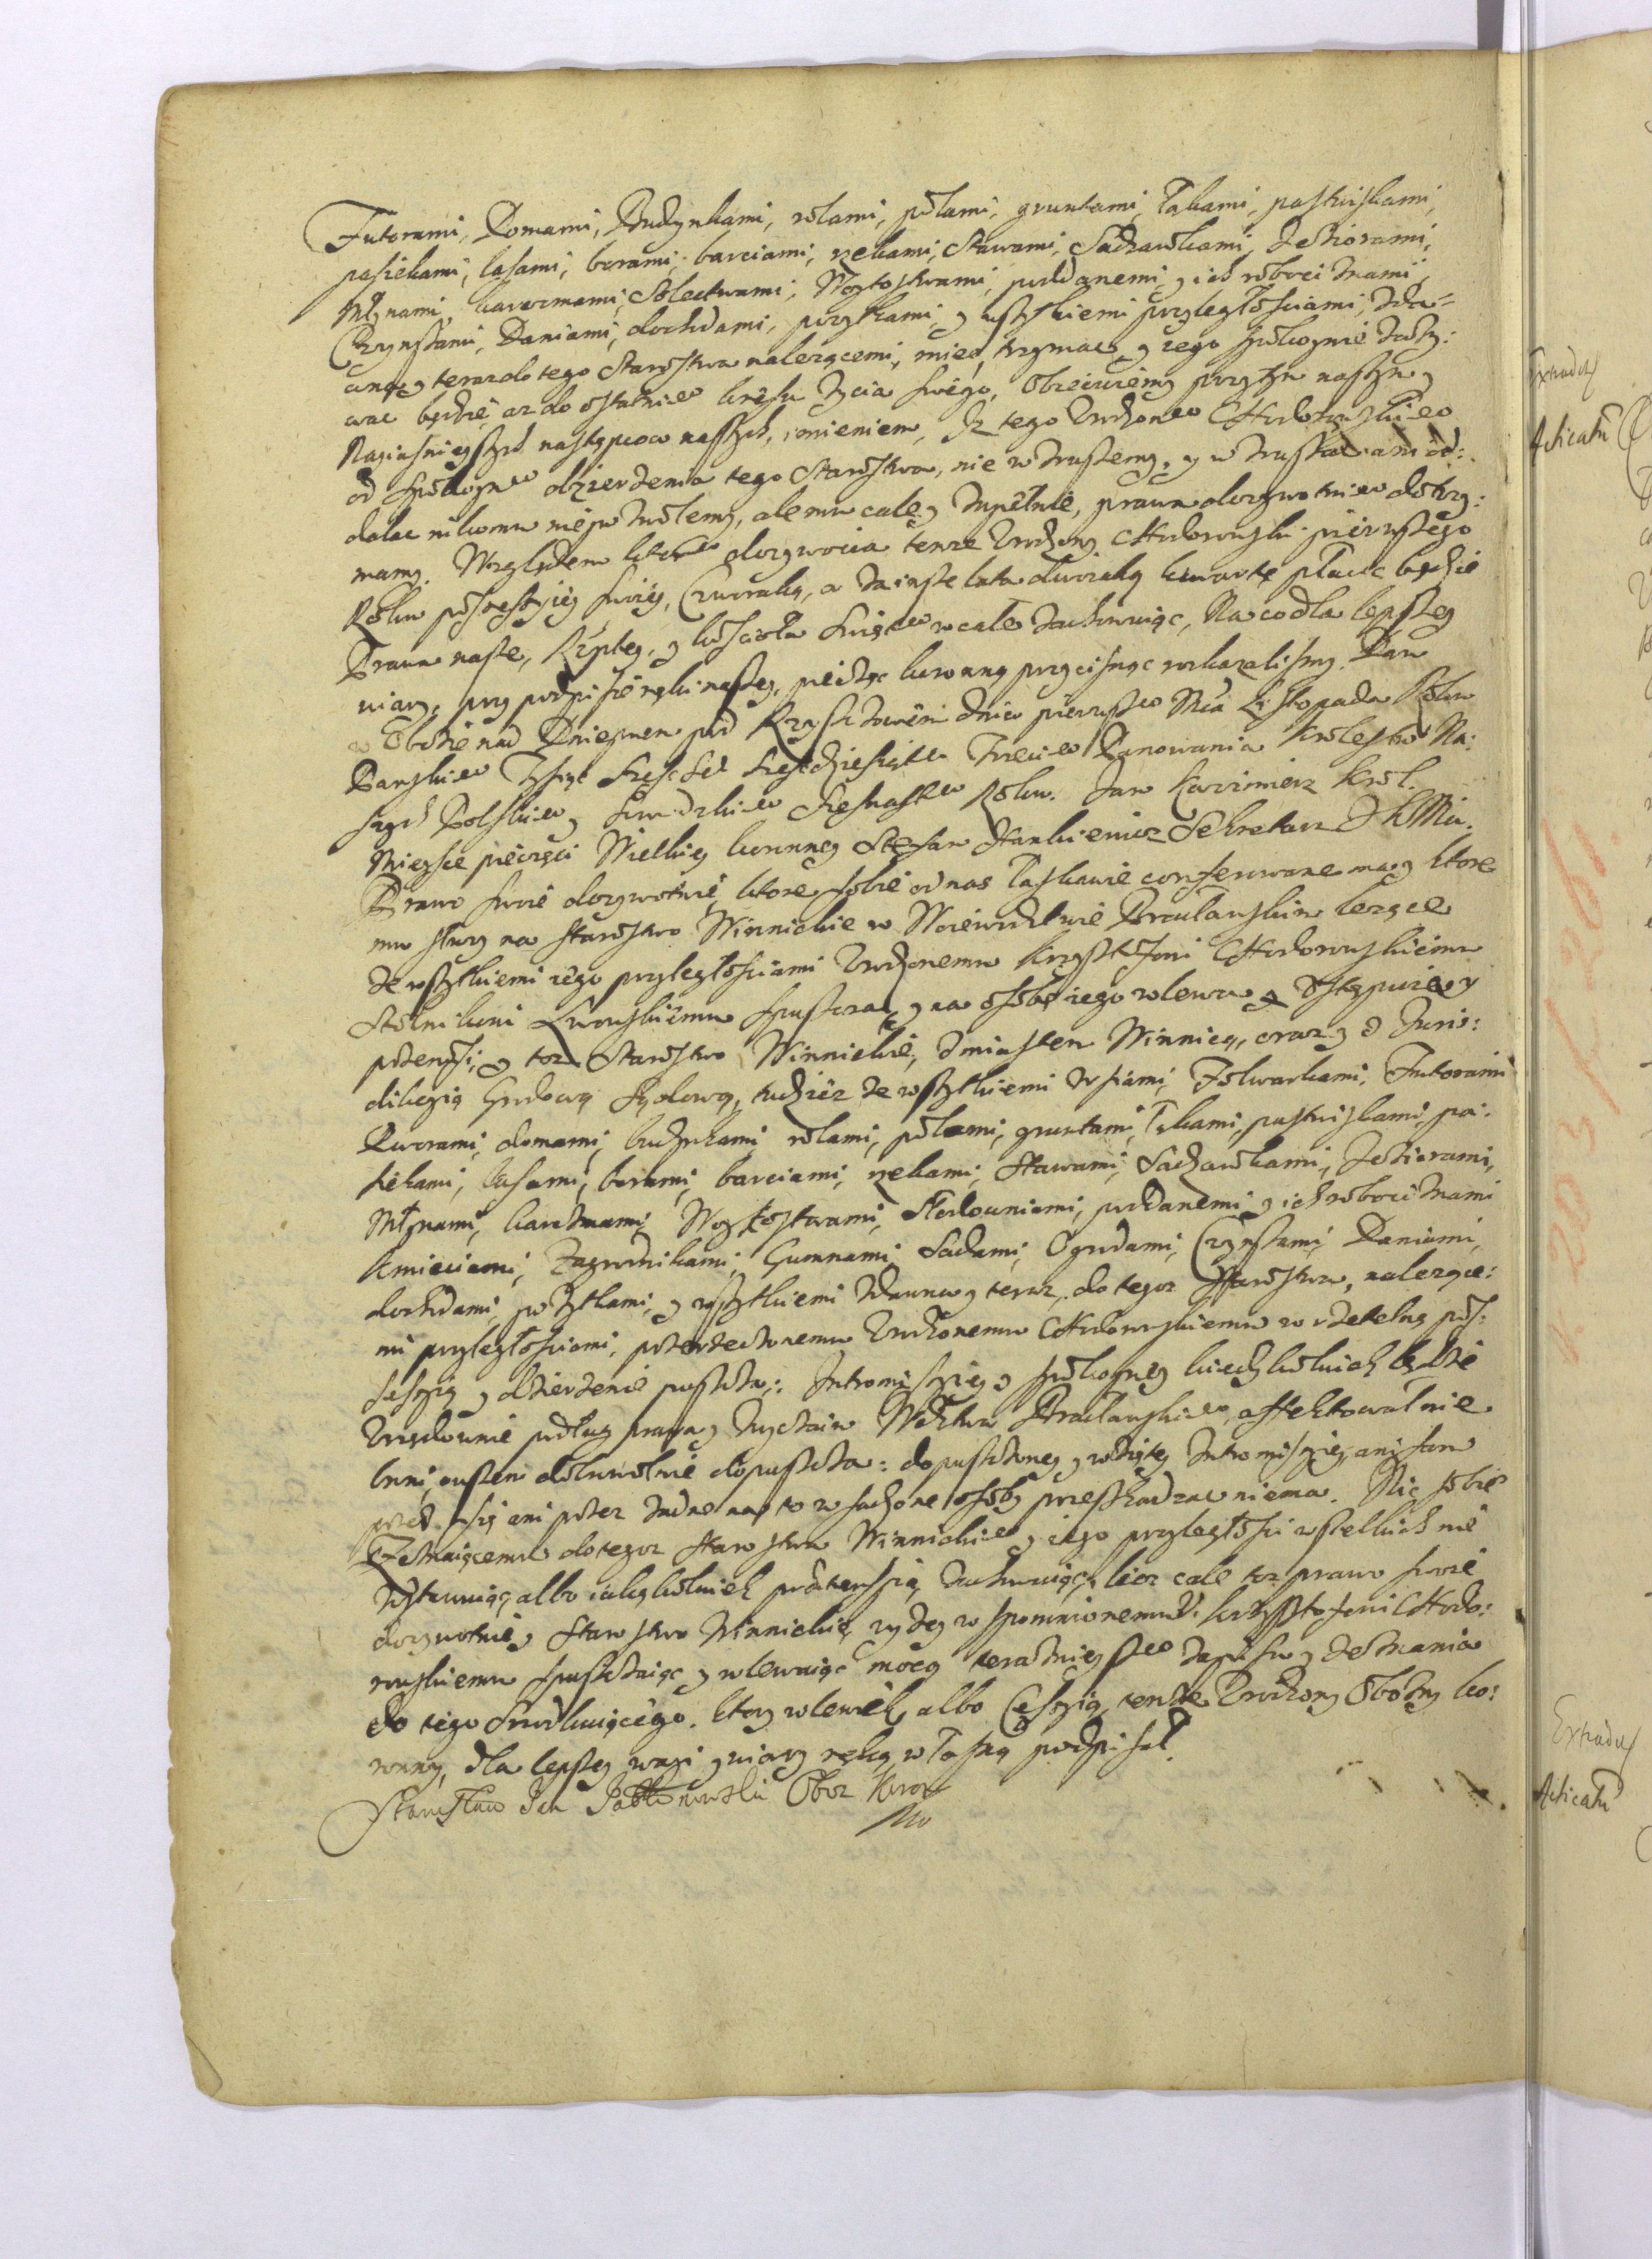 Futorami, Domami, Budynkami, rolami, polami, gruntami, Łąkami, pastwiskami,
pasiekami, lasami, borami, barciami, rzekami, Stawami, Sadzawkami, Jeziorami,
Młynami, karczmami, Solectwami, Woytostwami, poddanemi, y ich robociznami,
Czynszami, Daniami, dochodami, pożytkami, y wszytkiemi przyległościami, zda-
wna y teraz do tego Starostwa należącemi, mieć, trzymać y iego spokoynie zaży:
wać będzie, aż do ostatnie⁰ kresu życia swego. Obiecuiemy przytym naszym y
Naiaśnieyszych następcow naszych, imieniem, Iż tego Urodzone⁰ Chodorowskie⁰
od spokoyne⁰ dzierżenia tego Starostwa, nie wzruszemy, y wzruszać ani od:
dalać nikomu nie pozwolemy, ale mu całe y zupełnie, prawo dożywotnie⁰ dotrzy:
mamy. Względem które⁰ dożywocia tenże Urodzony Chodorowski pierwszego
Roku possessyiey swoiey, Czworaką, a zaś insze lata dwoiaką kwartę płacić będzie
Prawa nasze, Rzptey, y kościoła Swięte⁰ w cale zachowuiąc, Na co dla lepszey
wiary, przy podpisie ręki naszey, pieczęć koronną przycisnąć rozkazaliśmy. Dan
w Obozie nad Dnieprem pod Rzyszczowem dnia pierwsze⁰ Mca Listopada Roku
Panskie⁰ Tysiąc Szesc Set Szescdziesiąte⁰ Trzecie⁰ Panowania Krolestw Na:
szych Polskie⁰ y Szwedzkie⁰ Szesnaste⁰ Roku. Jan Kazimierz Krol.
Mieysce pieczęci Wielkiey koronney Stefan Hankiewicz Sekretarz J K Mci.
Prawo swoie dożywotnie, ktore sobie od nas Łaskawie conferowane ma y ktore
mu służy na Starostwo Winnickie w Woiewodztwie Bracławskim leżące
ze wszytkiemi iego przyległościami Urodzonemu Krzysztofowi Chodorowskiemu
Stolnikowi Lwowskiemu spuszcza, y na osobę iego wlewa y Ustępuie y
y toż Starostwo Winnickie, z miastem Winnicą, oraz y z Juris:
dikcyią Grodową Sądową, tudzież ze wszytkiemi wsiami, Folwarkami, Futorami
Dworami, domami, budynkami, rolami, polami, gruntami, Łąkami, pastwiskami, pa:
siekami, lasami, borami, barciami, rzekami, Stawami, Sadzawkami, Jeziorami,
Młynami, karczmami, Woytostwami, Słodowniami, poddanemi, y ich robociznami
kmieciami, Zagrodnikami, Gumnami, Sadami, Ogrodami, Czynszami, Daniami,
dochodami, pożytkami, y wszytkiemi zdawna y teraz, do tegoż Starostwa, należące:
mi przyległościami, przerzeczonemu Urodzonemu Chodorowskiemu w rzetelną pos:
sessyią y dzierżenie puszcza: Intromissyiey y spokoyney kiedykolwiek będzie
Urzędownie podług prawa y zwyczaiu Wodztwa Bracławskie⁰, affektował nie
broni, owszem dobrowolnie dopuszcza: dopuszczoney y wziętey Intromissyiey, ani sam
przez się ani przez żadne na to wsadzone osoby przeszkadzać niema. Nic sobie
Zeznaiącemu do tegoż Starostwa Winnickie⁰ y iego przyległości wszelkich nie
zostawuiąc, albo iakąkolwiek praetensyią zachowuiąc, lecz całe toż prawo swoie
dożywotnie y Starostwo Winnickie, wyżey wspomnionemu U. Krzysztofowi Chodo:
rowskiemu spuszczaiąc y wlewaiąc mocą teraźnieysze⁰ zapisu y zeznania
do tego służącego. Ktory wlewek, albo Cessyią tenże Urodzony Obozny ko:
ronny, dla lepszey wagi y wiary ręką własną podpisał.
Stanisław Jan Jabłonowski Oboz Koron
Mp
Extradu
Acticatū
Extradu
Acticatū